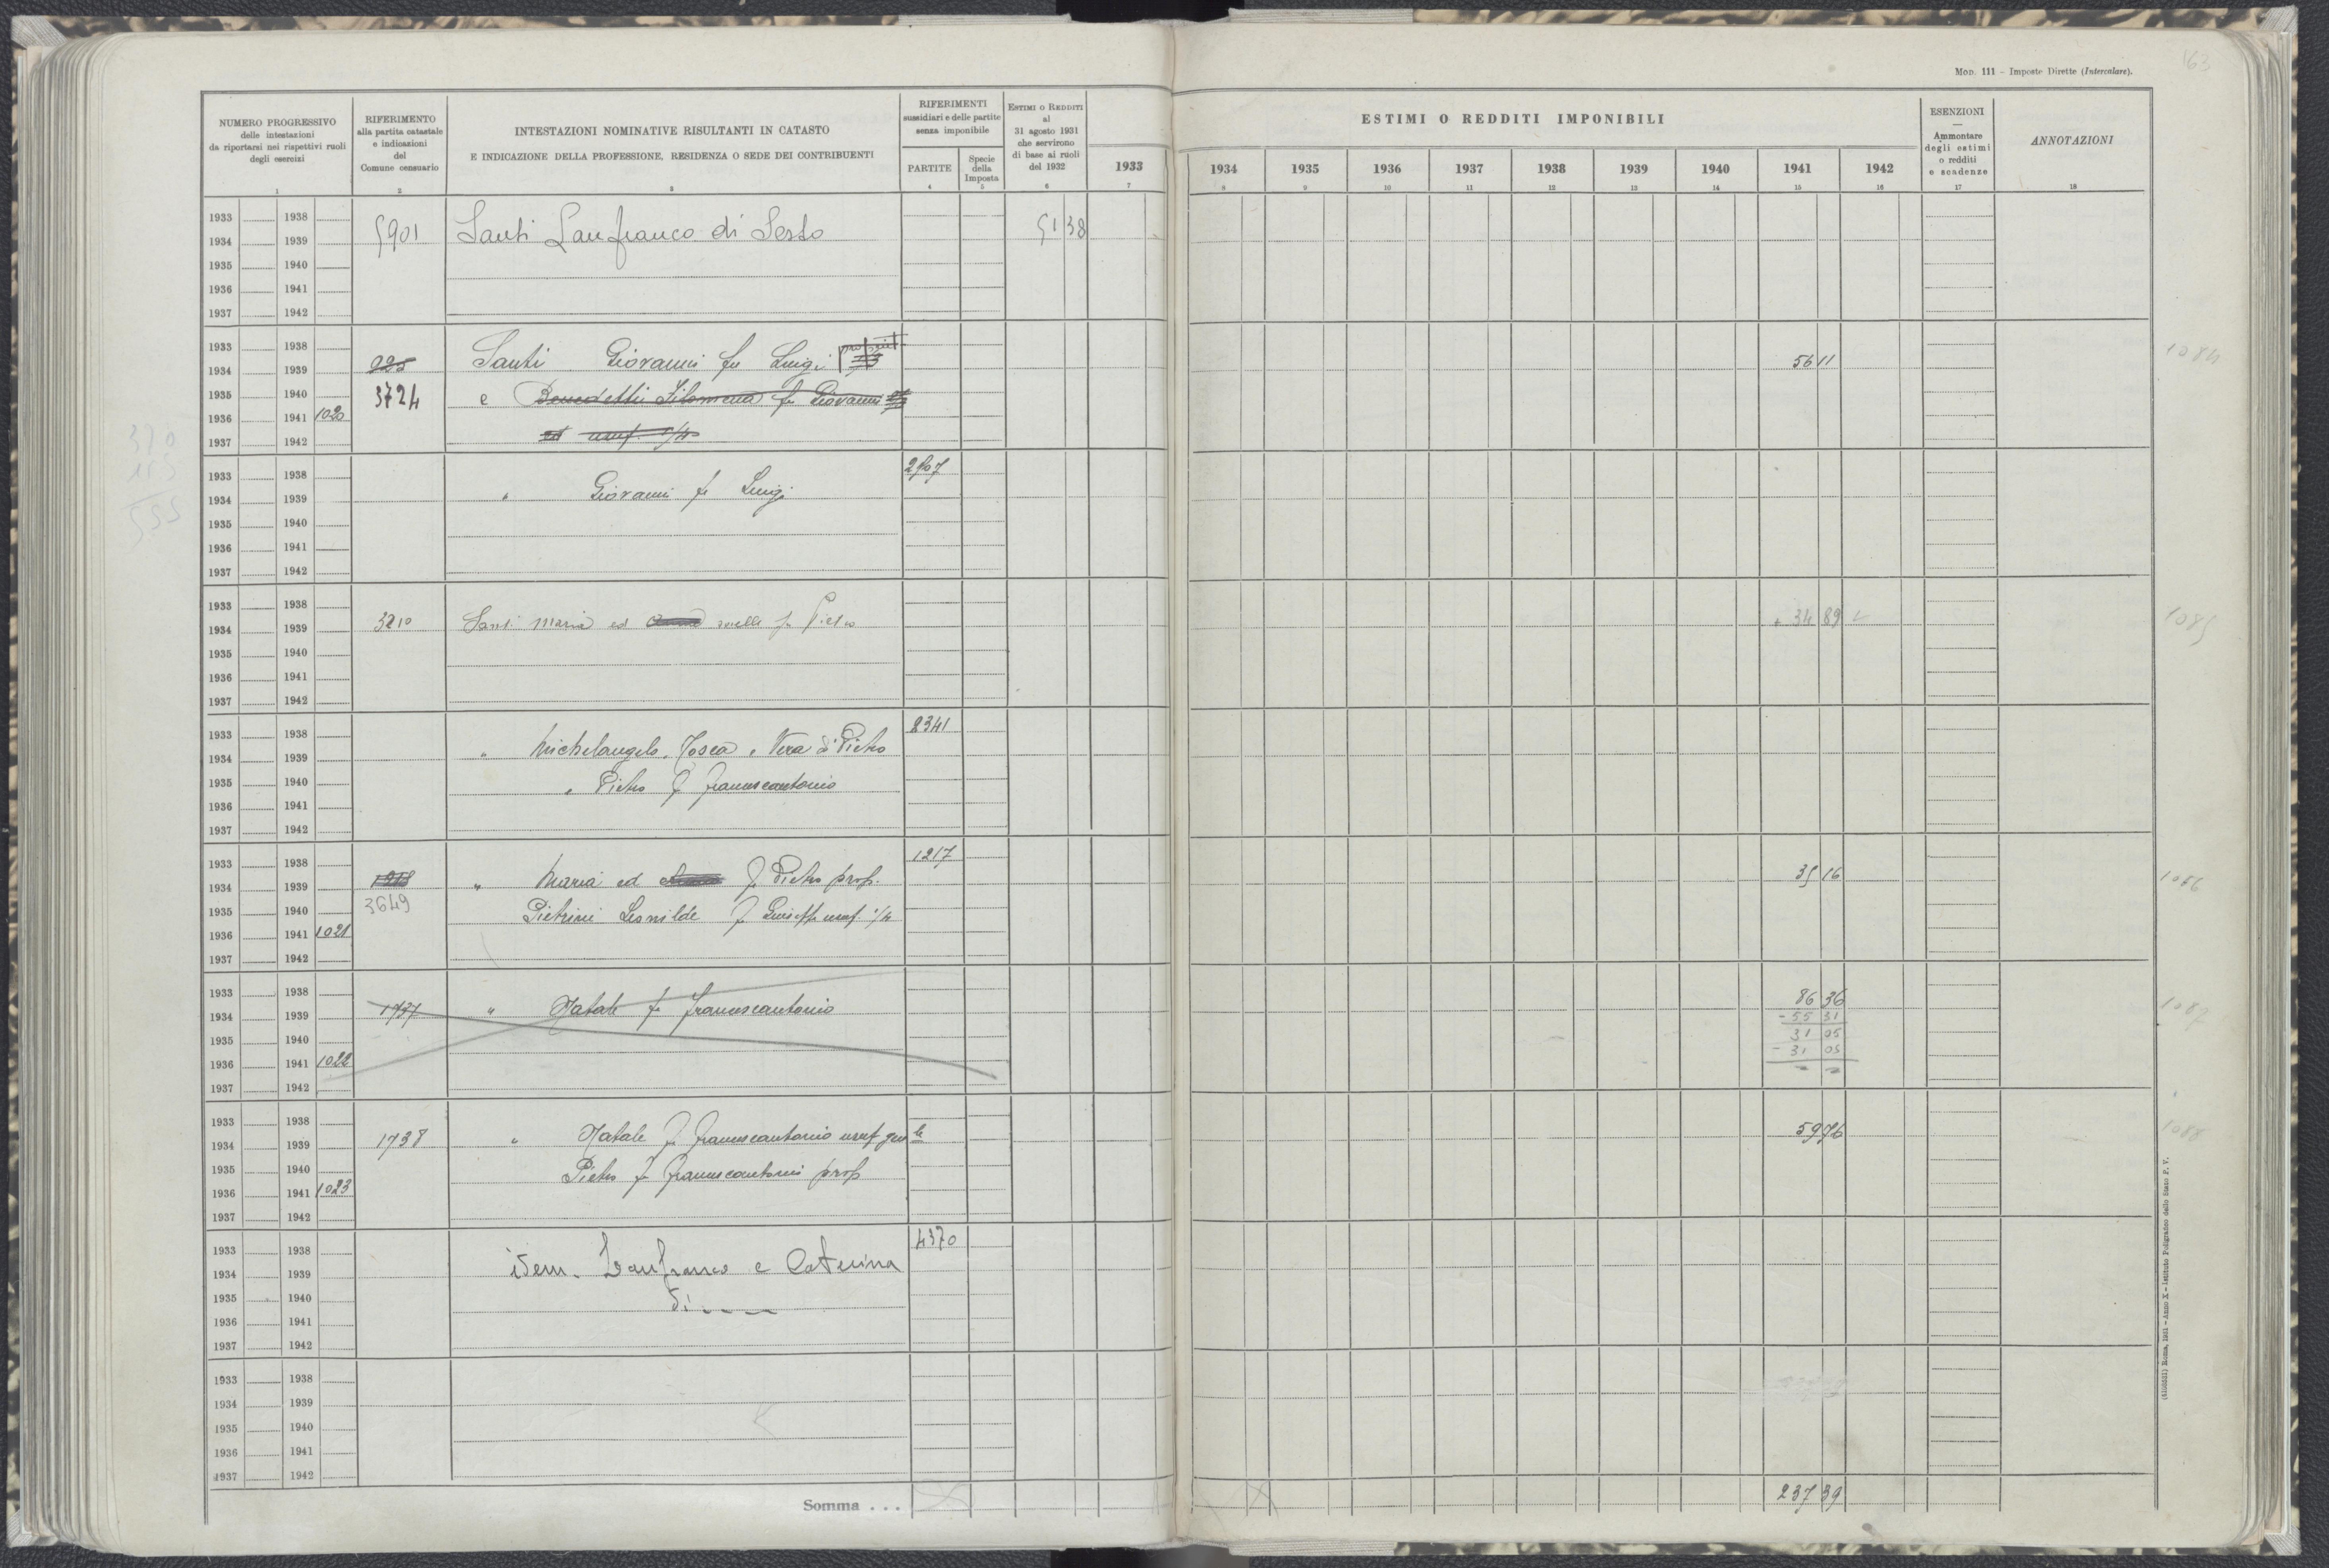 163
MOD. 111 - Imposte Dirette (Intercalare).
NUMERO PROGRESSIVO
delle intestazioni
da riportarsi nei rispettivi ruoli
degli esercizi
1
RIFERIMENTO
alla partita catastale
e indicazioni
del
Comune censuario
2
INTESTAZIONI NOMINATIVE RISULTANTI IN CATASTO
E INDICAZIONE DELLA PROFESSIONE, RESIDENZA O SEDE DEI CONTRIBUENTI
3
RIFERIMENTI
sussidiari e delle partite
senza imponibile
PARTITE
4
Specie
della
Imposta
5
ESTIMI O REDDITI
al
31 agosto 1931
che servirono
di base ai ruoli
del 1932
6
1933
7
ESTIMI O REDDITI IMPONIBILI
1934 1935 1936 1937 1938 1939 1940 1941 1942
8 9 10 11 12 13 14 15 16
ESENZIONI
—
Ammontare
degli estimi
o redditi
e scadenze
17
ANNOTAZIONI
18
1933 1938
1934 1939 5901 Santi Lanfranco di Sesto 51 38
1935 1940
1936 1941
1937 1942
1933 1938
1934 1939 925 Santi Giovanni fu Luigi 56 11 1084
1935 1940 3724 e Benedetti Filomena fu Giovanni
1936 1941 1020
1937 1942 ed usuf. 1/4
370
115
1933 1938 2907
1934 1939 " Giovanni fu Luigi
1935 1940
1936 1941
1937 1942
1933 1938
1934 1939 3210 Santi Maria ed sorelle fu Pietro + 34 89 1085
1935 1940
1936 1941
1937 1942
1933 1938 2341
1934 1939 " Michelangelo, Tosca e Vera di Pietro
1935 1940 " Pietro fu Francescantonio
1936 1941
1937 1942
1933 1938 1217
1934 1939 1218 " Maria ed fu Pietro prop. 35 16 1086
1935 1940 3649 Pietrini Leonilde fu Giuseppe usuf 1/4
1936 1941 1021
1937 1942
1933 1938 86 36
1934 1939 1737 " Natale fu Francescantonio - 55 31 1087
1935 1940 31 05
1936 1941 1022 - 31 05
1937 1942
1933 1938
1934 1939 1738 " Natale fu Francescantonio usuf gen le 59 76 1088
1935 1940 Pietro fu Francescantonio prop
1936 1941 1023
1937 1942
1933 1938 4370
1934 1939 idem. Lanfranco e Caterina
1935 1940 di
1936 1941
1937 1942
1933 1938
1934 1939
1935 1940
1936 1941
1937 1942
Somma . . . 237 39
Roma, 1931 - Anno X - Istituto Poligrafico dello Stato P. V.